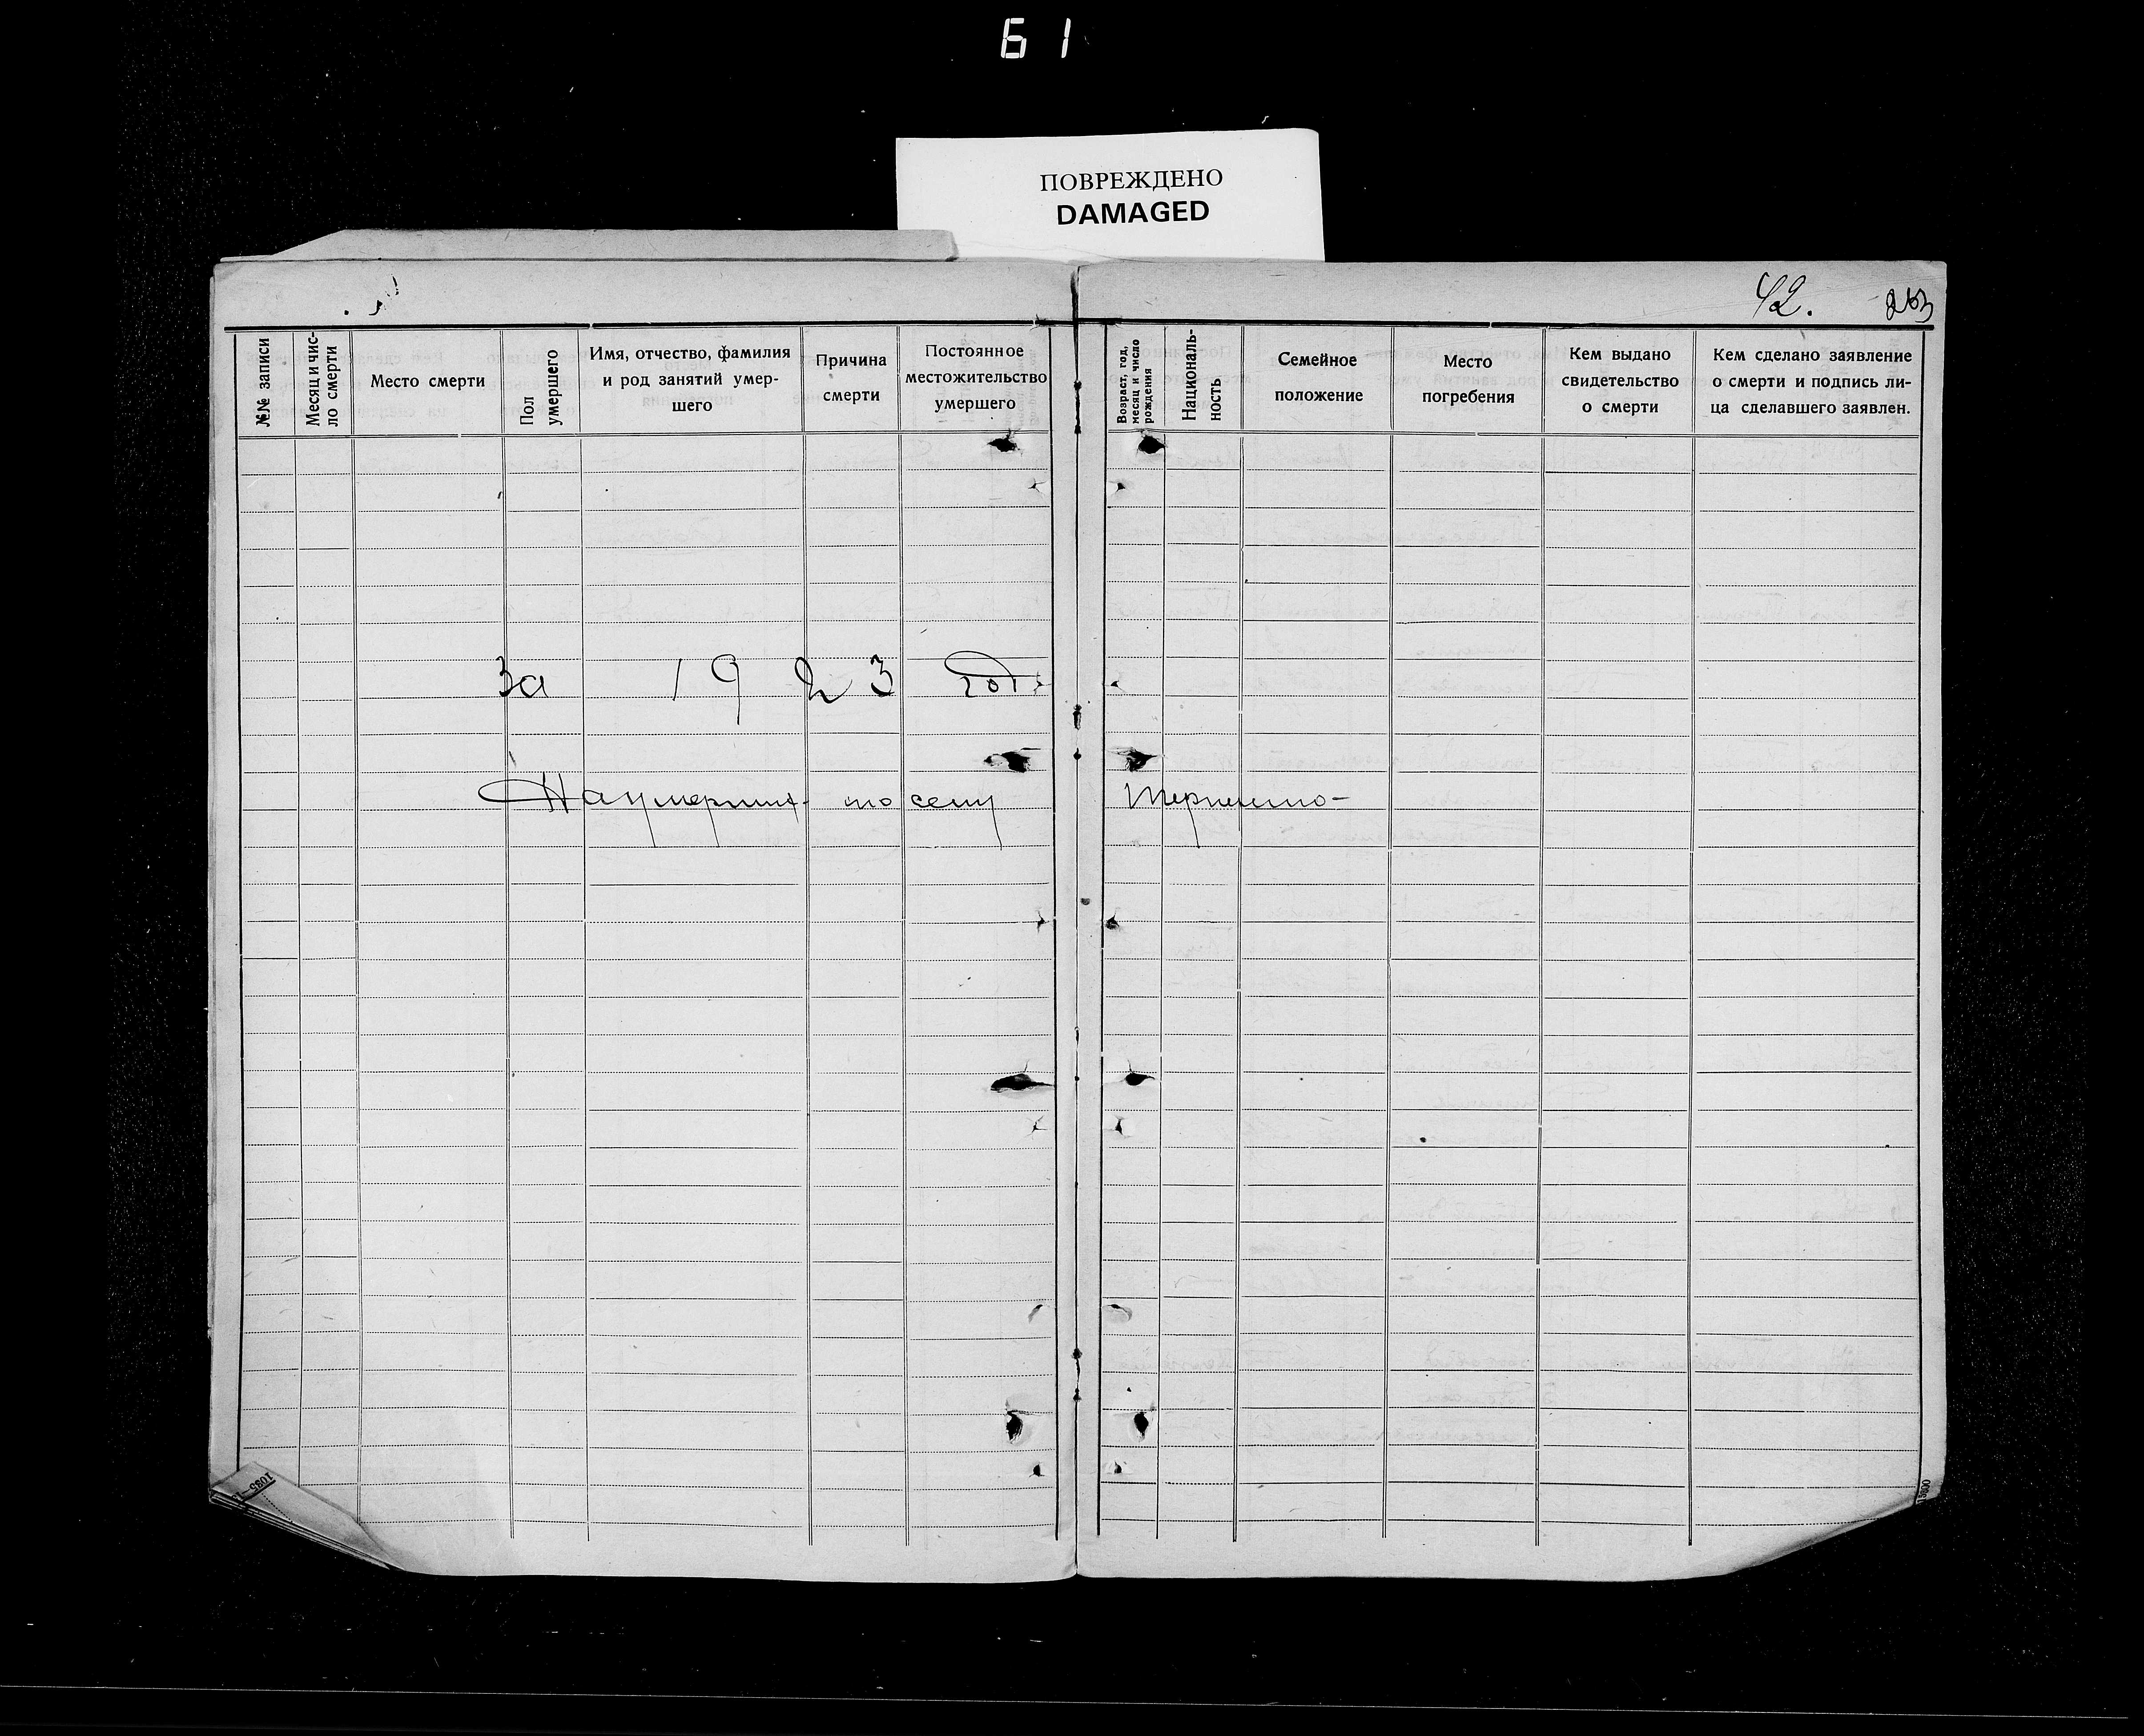 61
ПОВРЕЖДЕНО
DAMAGED
42. 263
№№ записи
Месяц и чис-
ло смерти
Место смерти
Пол
умершего
Имя, отчество, фамилия
и род занятий умер-
шего
Причина
смерти
Постоянное
местожительство
умершего
Возраст, год,
месяц и число
рождения
Националь-
ность
Семейное
положение
Место
погребения
Кем выдано
свидетельство
о смерти
Кем сделано заявление
о смерти и подпись ли-
ца сделавшего заявлен.
За 1923 год
На умерших по селу